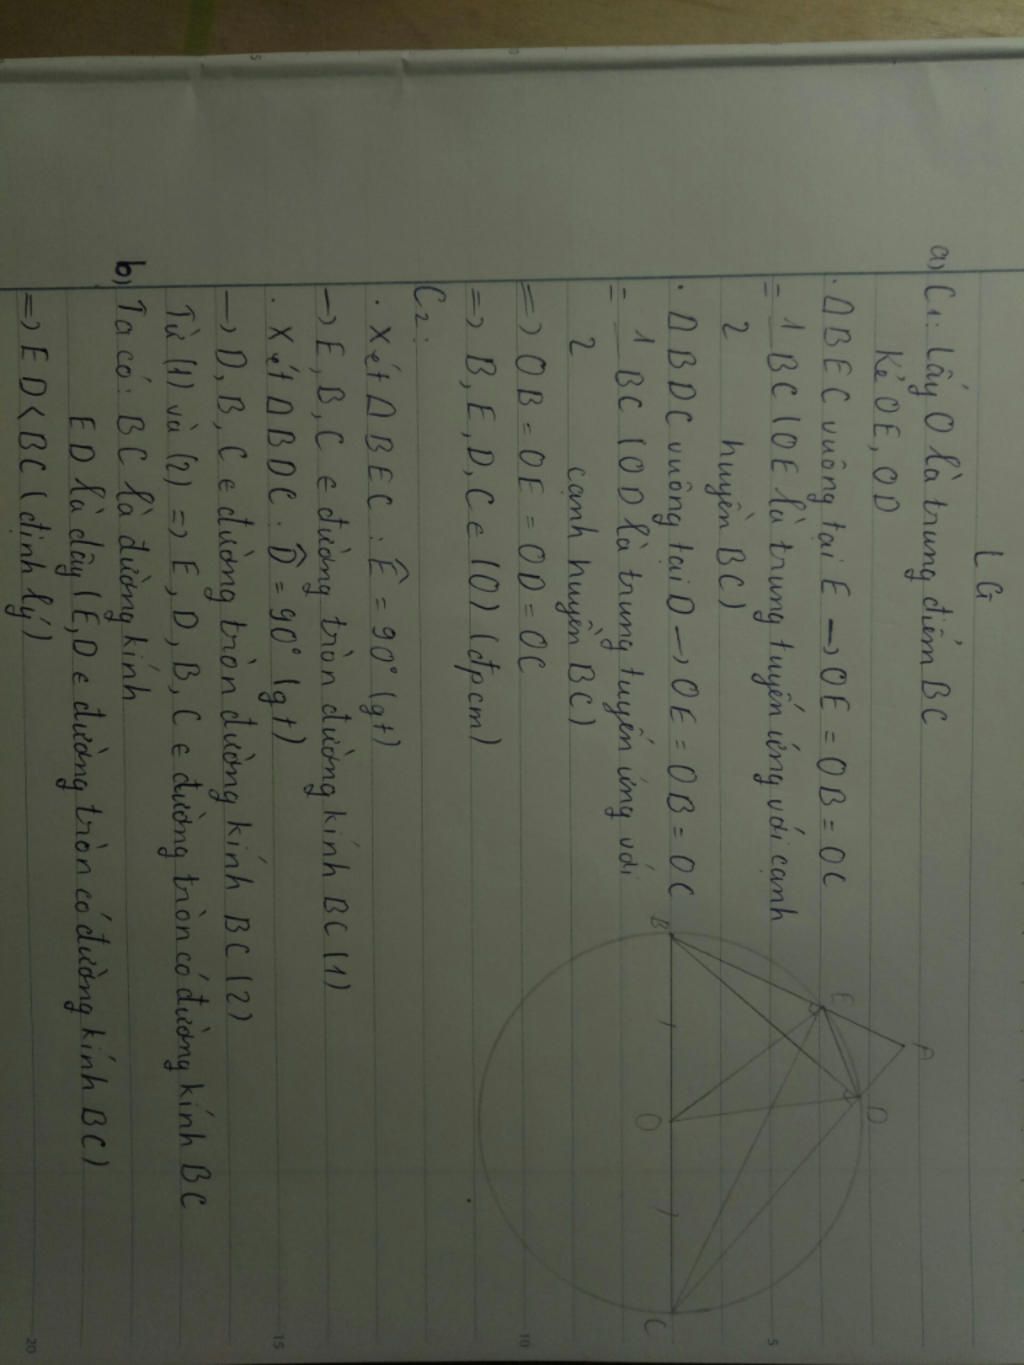 LG
a) C1: Lấy O là trung điểm BC
Kẻ OE, OD
. Δ BEC vuông tại E → OE = OB = OC
= 1/2 BC (OE là trung tuyến ứng với cạnh
huyền BC)
. Δ BDC vuông tại D → OE = OB = OC
= 1/2 BC (OD là trung tuyến ứng với
cạnh huyền BC)
=> OB = OE = OD = OC
=> B, E, D, C ∈ (O) (đpcm)
C2:
. Xét Δ BEC : Ê = 90° (gt)
→ E, B, C ∈ đường tròn đường kính BC (1)
. Xét Δ BDC : D̂ = 90° (gt)
→ D, B, C ∈ đường tròn đường kính BC (2)
Từ (1) và (2) => E, D, B, C ∈ đường tròn có đường kính BC
b) Ta có: BC là đường kính
ED là dây (E, D ∈ đường tròn có đường kính BC)
=> ED < BC (định lý)
A
E
D
B
O
C
5
10
15
20